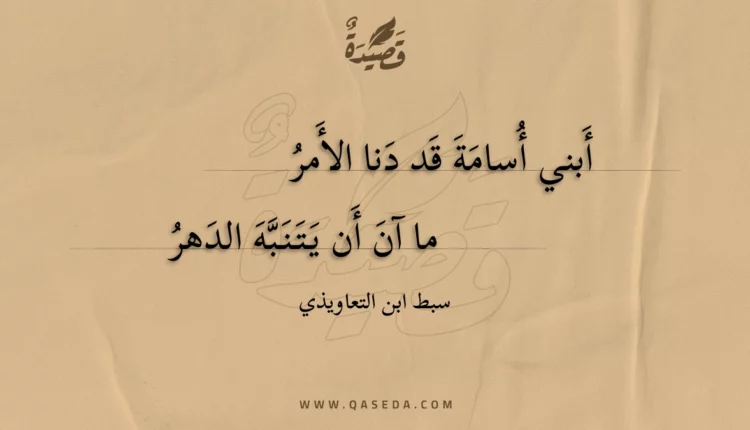 قَصِيْدَةٌ
أَبني أُسامَةَ قَد دَنا الأَمرُ
ما آنَ أَن يَتَنَبَّهَ الدَهرُ
سبط ابن التعاويذي
WWW.QASEDA.COM